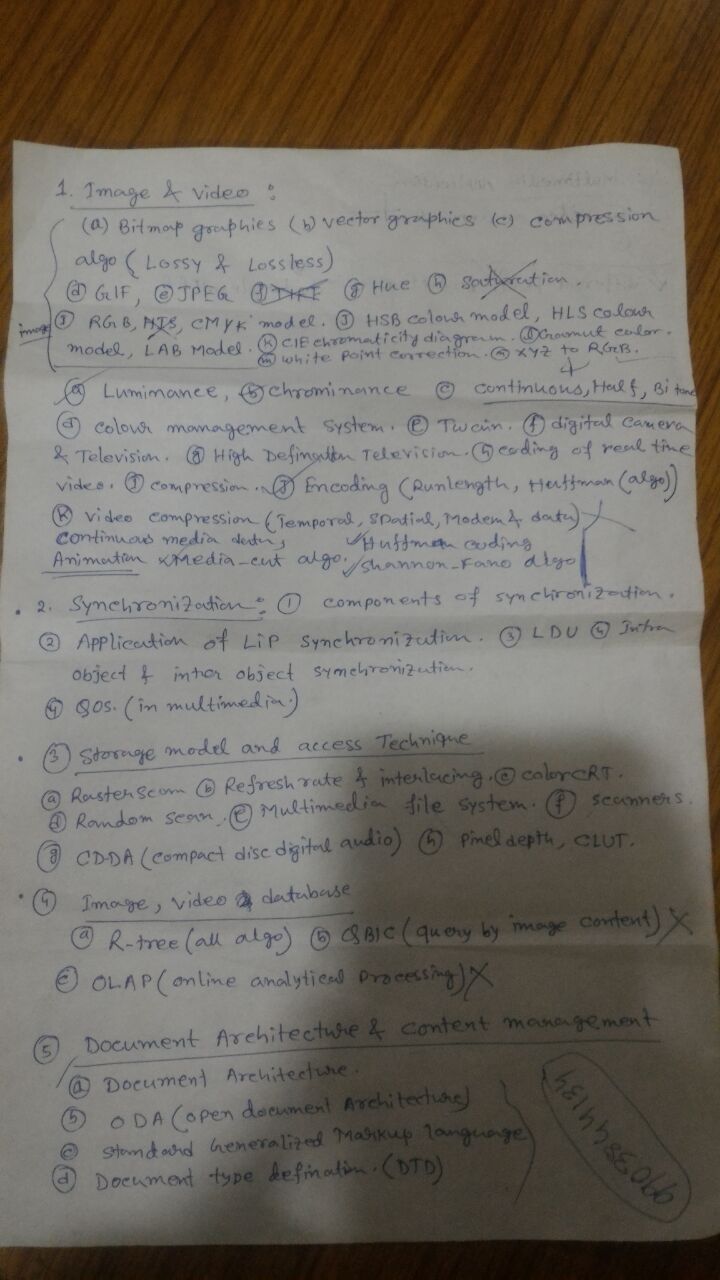 1. Image & video :
(a) Bitmap graphics (b) vector graphics (c) compression
algo (Lossy & Lossless)
(d) GIF, (e) JPEG (f) TIFF (g) Hue (h) Saturation.
image
(i) RGB, NTS, CMYK model. (J) HSB colour model, HLS colour
model, LAB Model. (K) CIE chromaticity diagram. (l) Gamut color.
(m) white point correction. (n) XYZ to RGB.
(a) Luminance, (b) chrominance (c) continuous, Half, Bi tone
(d) colour management system. (e) Twain. (f) digital camera
& Television. (g) High Defination Television. (h) coding of real time
video. (i) compression. (j) Encoding (Runlength, Huffman (algo))
(K) video compression (Temporal, Spatial, Modem & data)
continuous media data, Huffman coding
Animation x Media-cut algo. Shannon-Fano algo
2. Synchronization: (1) components of synchronization.
(2) Application of LiP synchronization. (3) LDU (4) Intra
object & inter object synchronization.
(4) QOS. (in multimedia.)
(3) Storage model and access Technique
(a) Raster scan (b) Refresh rate & interlacing. (c) color CRT.
(d) Random scan. (e) Multimedia file system. (f) scanners.
(g) CDDA (compact disc digital audio) (h) Pixel depth, CLUT.
(4) Image, video & database
(a) R-tree (all algo) (b) QBIC (query by image content) X
(c) OLAP (online analytical processing) X
(5) Document Architecture & content management
(a) Document Architecture.
(b) ODA (open document Architecture)
(c) standard Generalized Markup language
(d) Document type defination. (DTD)